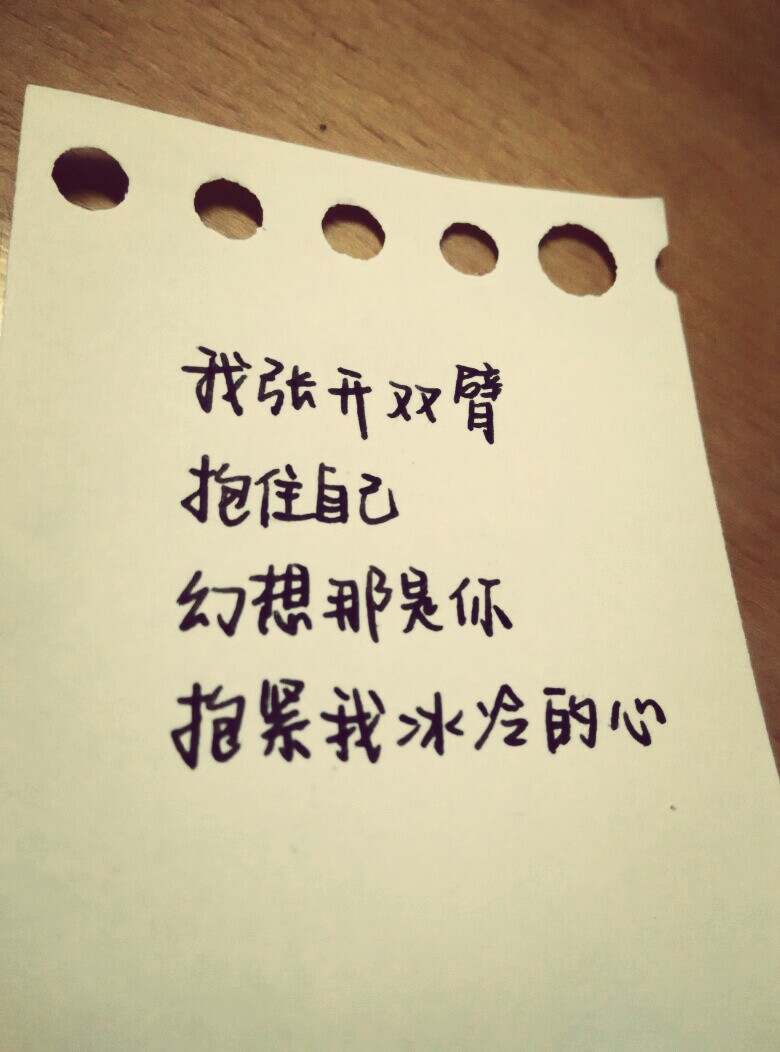 我张开双臂
抱住自己
幻想那是你
抱紧我冰冷的心